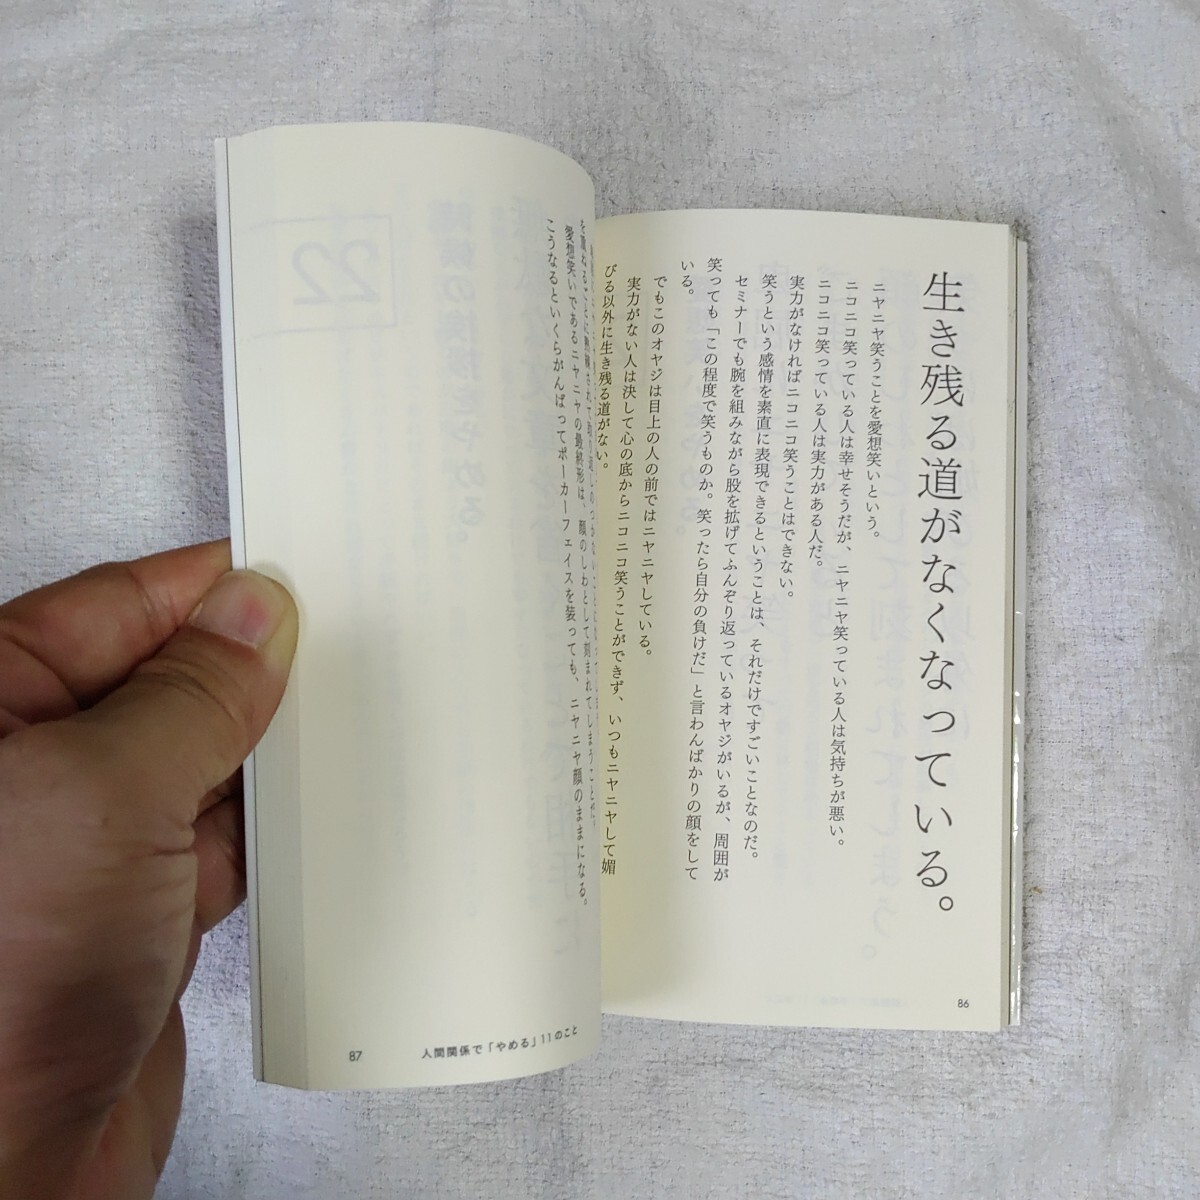 生き残る道がなくなっている。
ニヤニヤ笑うことを愛想笑いという。
ニコニコ笑っている人は幸せそうだが、ニヤニヤ笑っている人は気持ちが悪い。
ニコニコ笑っている人は実力がある人だ。
実力がなければニコニコ笑うことはできない。
笑うという感情を素直に表現できるということは、それだけですごいことなのだ。
セミナーでも腕を組みながら股を拡げてふんぞり返っているオヤジがいるが、周囲が
笑っても「この程度で笑うものか。笑ったら自分の負けだ」と言わんばかりの顔をして
いる。
でもこのオヤジは目上の人の前ではニヤニヤしている。
実力がない人は決して心の底からニコニコ笑うことができず、いつもニヤニヤして媚
びる以外に生き残る道がない。
86
愛想笑いであるニヤニヤの最終形は、顔のしわとして刻まれてしまうことだ。
こうなるといくらがんばってポーカーフェイスを装っても、ニヤニヤ顔のままになる。
87
人間関係で「やめる」11のこと
22